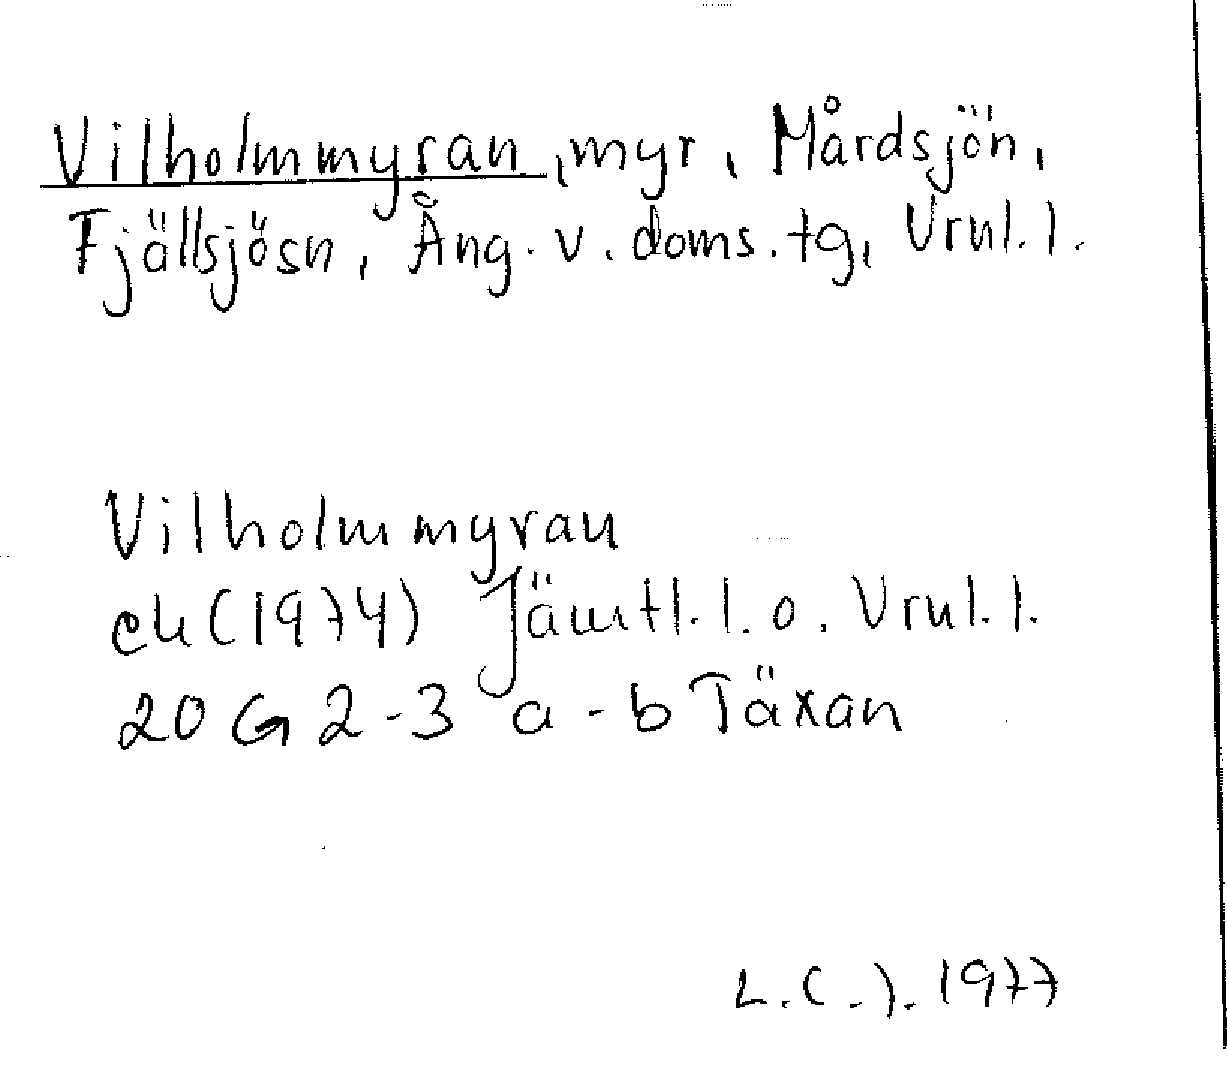 Vilholmmyran, myr, Mårdsjön,
Fjällsjösn, Ång. v. doms. tg, Vrnl. l.
Vilholmmyran
ek (1974) Jämtl. l. o. Vrnl. l.
20 G 2-3 a-b Täxan
L. (-). 1977